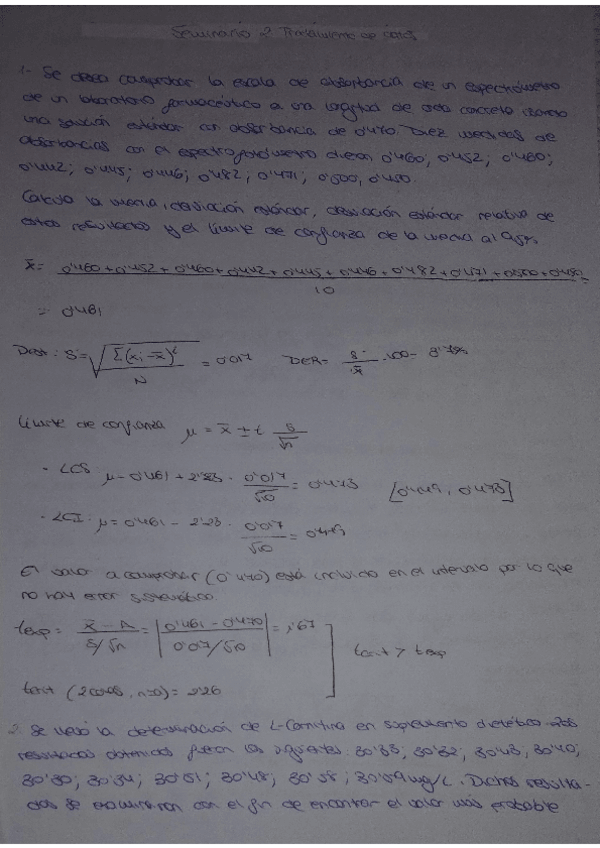 Seminario 2 Tratamiento de datos
1.- Se desea comprobar la escala de absorbancia de un espectrómetro
de un laboratorio farmacéutico a una longitud de onda concreta usando
una solución estándar con absorbancia de 0'470. Diez medidas de
absorbancias con el espectrofotómetro dieron 0'460; 0'452; 0'460;
0'442; 0'445; 0'446; 0'482; 0'471; 0'500; 0'450.
Calcula la media, desviación estándar, desviación estándar relativa de
estos resultados y el límite de confianza de la media al 95%
x̄ = 0'460 + 0'452 + 0'460 + 0'442 + 0'445 + 0'446 + 0'482 + 0'471 + 0'500 + 0'450
10
= 0'461
S = √ Σ(xi - x̄)² / N = 0'017 DER = S / x̄ · 100 =
Límite de confianza μ = x̄ ± t S/√n
- LCS μ = 0'461 + 2'23 · 0'017/√10 = 0'473 [0'449, 0'473]
- LCI: μ = 0'461 - 2'23 · 0'017/√10 = 0'449
El valor a comprobar (0'470) está incluido en el intervalo por lo que
no hay error sistemático.
texp = x̄ - A / S/√n = |0'461 - 0'470 / 0'017/√10| = 1'67
tcrit > texp
tcrit = 2'26
2. Se llevó la determinación de L-Carnitina en suplemento dietético. Los
resultados obtenidos fueron los siguientes: 30'33, 30'32; 30'43, 30'40;
30'30; 30'34; 30'51; 30'48; 30'58; 30'59 mg/L. Dichos resulta-
dos se examinaron con el fin de encontrar el valor más probable